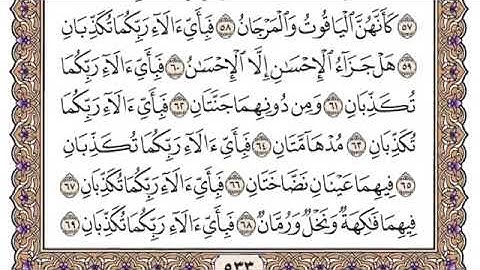 ٥٧ كَأَنَّهُنَّ ٱلْيَاقُوتُ وَٱلْمَرْجَانُ ٥٨ فَبِأَىِّ ءَالَآءِ رَبِّكُمَا تُكَذِّبَانِ
٥٩ هَلْ جَزَآءُ ٱلْإِحْسَـٰنِ إِلَّا ٱلْإِحْسَـٰنُ ٦٠ فَبِأَىِّ ءَالَآءِ رَبِّكُمَا
تُكَذِّبَانِ ٦١ وَمِن دُونِهِمَا جَنَّتَانِ ٦٢ فَبِأَىِّ ءَالَآءِ رَبِّكُمَا
تُكَذِّبَانِ ٦٣ مُدْهَآمَّتَانِ ٦٤ فَبِأَىِّ ءَالَآءِ رَبِّكُمَا تُكَذِّبَانِ
٦٥ فِيهِمَا عَيْنَانِ نَضَّاخَتَانِ ٦٦ فَبِأَىِّ ءَالَآءِ رَبِّكُمَا تُكَذِّبَانِ ٦٧
فِيهِمَا فَـٰكِهَةٌ وَنَخْلٌ وَرُمَّانٌ ٦٨ فَبِأَىِّ ءَالَآءِ رَبِّكُمَا تُكَذِّبَانِ ٦٩
٥٣٣